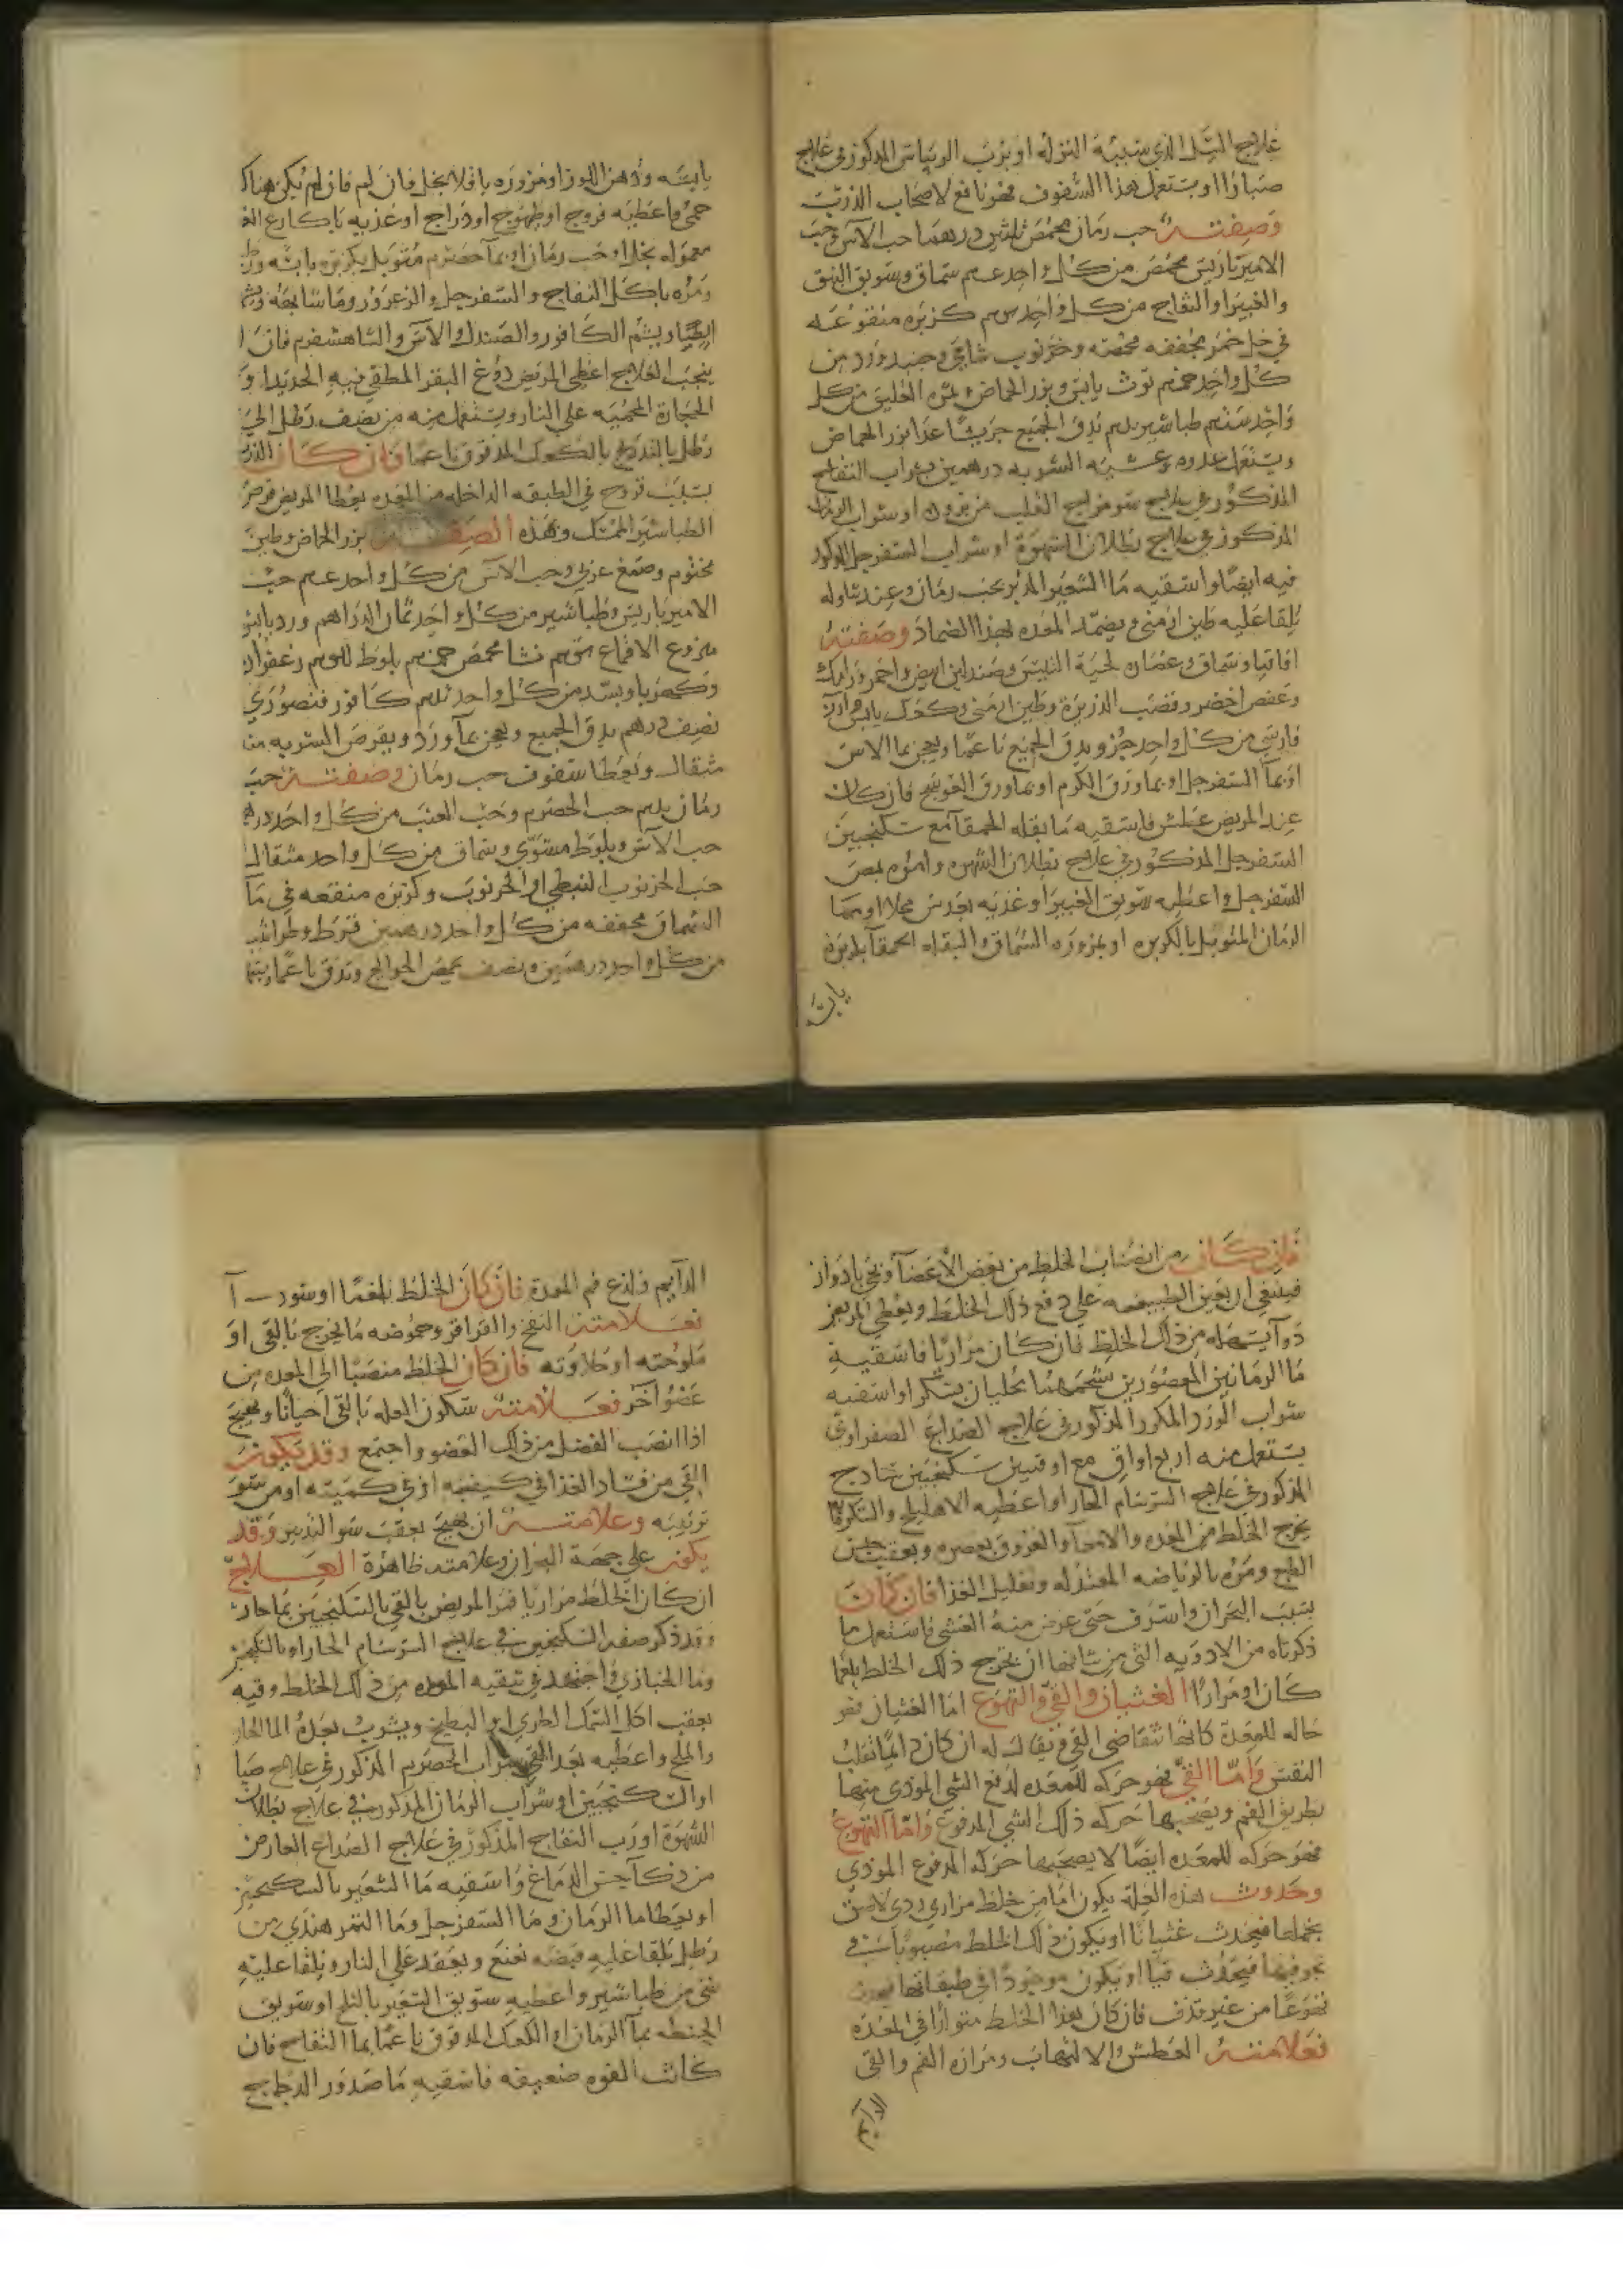 علاج السل الذي سببه النزله او برب الريباس المذكور في علاج
صبارا او يستعمل هذا السفوف فهو نافع لاصحاب الذرب
وصفته حب رمان محمص ثلثين درهما حب الاس وحب
الامير باريس محمص من كل واحد سماق وسويق النبق
والغبيرا والتفاح من كل واحد كزبره منقوعه
في خل خمر مجففه محمصه وخرنوب شامي وجنبد ورد من
كل واحد توث يابس وبزر الحماض وثمره العليق من كل
واحد طباشير يدق الجميع جريشا عدا بزر الحماض
ويستعمل غدوه وعشيه الشربه درهمين بشراب التفاح
المذكور في علاج سو مزاج القلب من بروده او شراب
المذكور في علاج بطلان الشهوة او شراب السفرجل المذكور
فيه ايضا واسقيه ما الشعير المدبر بحب رمان وعند تناوله
يلقا عليه طين ارمني ويضمد المعده بهذا الضماد وصفته
اقاقيا وسماق وعصاره لحية التيس وصندلين ابيض واحمر ورامك
وعفص اخضر وقصب الذريرة وطين ارمني وكعك يابس
فارسي من كل واحد جزو يدق الجميع ناعما ويعجن بما الاس
او بما السفرجل او بما ورق الكرم او بما ورق العوسج فان كان
عند المريض عطش فاسقيه ما بقله الحمقا مع سكنجبين
السفرجل المذكور في علاج بطلان الشهوه وامره بمص
السفرجل واعطيه سويق الغبيرا وغذيه بعدس محلا او بما
الرمان المتوبل بالكزبره او بمزوره السماق والبقله الحمقا بكزبرة
يابسه
يابسه ودهن اللوز او مزوره باقلا بخل فان لم فان لم يكن هناك
حمى فاعطيه فروج او طيهوج او دراج او غذيه باكارع
معموله بخل او حب رمان او بما حصرم متوبل بكزبره يابسه
ومره باكل التفاح والسفرجل والزعرور وما شابهه
ويشم الكافور والصندل والاس والشاهسفرم فان
ينجب العلاج اعطي المريض دوغ البقر المطفي فيه الحديد او
الحجارة المحميه علي النار ويستعمل منه من نصف رطل الي
رطل بالتدريج بالكعك المدقوق ناعما فان كان
بسبب قروح في الطبقه الداخله من المعده يعطا المريض قرص
الطباشير الممسك وهذه الصفه بزر الحماض وطين
مختوم وصمغ عربي وحب الاس من كل واحد حب
الامير باريس وطباشير من كل واحد ثمان الدراهم ورد يابس
منزوع الاقماع نشا محمص بلوط زعفران
وكهربا وبسد من كل واحد كافور فنصوري
نصف درهم يدق الجميع ويعجن بما ورد ويقرص الشربه منه
مثقال ويعطا سفوف حب رمان وصفته حب
رمان حب الحصرم وحب العنب من كل واحد
حب الاس وبلوط مشوي وسماق من كل واحد مثقال
حب الخرنوب النبطي او الخرنوب وكزبره منقعه في ما
السماق مجففه من كل واحد درهمين قرط وطراثيث
من كل واحد درهمين ونصف يحمص الحوائج وتدق ناعما
فان كان من انصباب الخلط من بعض الاعضا
فينبغي ان يعين الطبيعه علي دفع ذلك الخلط ويعطي المريض
دوا يسهله من ذلك الخلط فان كان مراريا فاسقيه
ما الرمانين المعصورين بشحمهما يحليان بسكر او اسقيه
شراب الورد المكرر المذكور في علاج الصداع الصفراوي
يستعمل منه اربع اواق مع اوقيتين سكنجبين ساذج
المذكور في علاج السرسام الحار او اعطيه الاهليلج والسكر
يخرج الخلط من المعده والامعا والعروق بعصره ويعقب حبس
الطبع ومره بالرياضه المعتدله وتقليل الغذا فان كان
بسبب البحران واسرف حتى عرض منه الغشي فاستعمل ما
ذكرناه من الادويه التي من شانها ان تخرج ذلك الخلط بلغما
كان او مرارا الغثيان والقي والتهوع اما الغثيان فهو
حاله للمعدة كانها تتقاضى القي ويقال له ان كان دايما تقلب
النفس واما القي فهو حركه للمعده لدفع الشي الموذي منها
بطريق الفم ويصحبها حركه ذلك الشي المدفوع واما التهوع
فهو حركه للمعده ايضا لا يصحبها حركه المدفوع الموذي
وحدوث هذه العله يكون اما من خلط مراري ردي لاصق
بخملها فيحدث غثيانا او يكون ذلك الخلط مصبوبا في
تجويفها فيحدث قيا او يكون موجودا في طبقاتها فيحدث
تهوعا من غير قذف فان كان هذا الخلط متولدا في المعده
فعلامته العطش والالتهاب ومراره الفم والقي
الدايم
الدايم ولذع فم المعدة فان كان الخلط بلغما او سودا
فعلامته النفخ والقراقر وحموضه ما يخرج بالقي او
ملوحته او حلاوته فان كان الخلط منصبا الى المعده من
عضو اخر فعلامته سكون العله بالقي احيانا وتهيج
اذا انصب الفضل من ذلك العضو واجتمع وقد يكون
القي من فساد الغذا في كيفيته او في كميته او من سو
ترتيبه وعلامته ان يهيج بعقب سو التدبير وقد
يكون علي جهة البحران وعلامته ظاهرة العلاج
ان كان الخلط مراريا فمر المريض بالقي بالسكنجبين بما حار
وقد ذكر صفه السكنجبين في علاج السرسام الحار او بالسكنجبين
وما الخبازي واجتهد في تنقيه المعده من ذلك الخلط وقيه
بعقب اكل السمك الطري او البطيخ ويشرب بعده الما الحار
والملح واعطيه بعد القي شراب الحصرم المذكور في علاج
او السكنجبين او شراب الرمان المذكورين في علاج بطلان
الشهوة او رب التفاح المذكور في علاج الصداع العارض
من ذكا حس الدماغ واسقيه ما الشعير بالسكنجبين
او يعطا ما الرمان وما السفرجل وما التمر هندي من
رطل يلقا عليه قبضه نعنع ويعقد علي النار ويلقا عليه
شي من طباشير واعطيه سويق الشعير بالثلج او سويق
الحنطه بما الرمان او الكعك المدقوق ناعما بما التفاح فان
كانت القوه ضعيفه فاسقيه ما صدور الدجاج